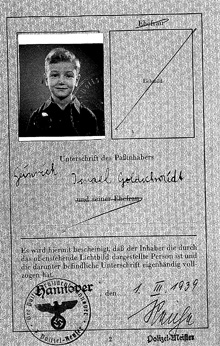 Ehefrau
Lichtbild
Unterschrift des Paßinhabers
Heinrich Israel Goldschmidt
und seiner Ehefrau
Es wird hiermit bescheinigt, daß der Inhaber die durch
das obenstehende Lichtbild dargestellte Person ist und
die darunter befindliche Unterschrift eigenhändig voll-
zogen hat.
Hannover, den 1. III. 1939
Polizei-Meister
2